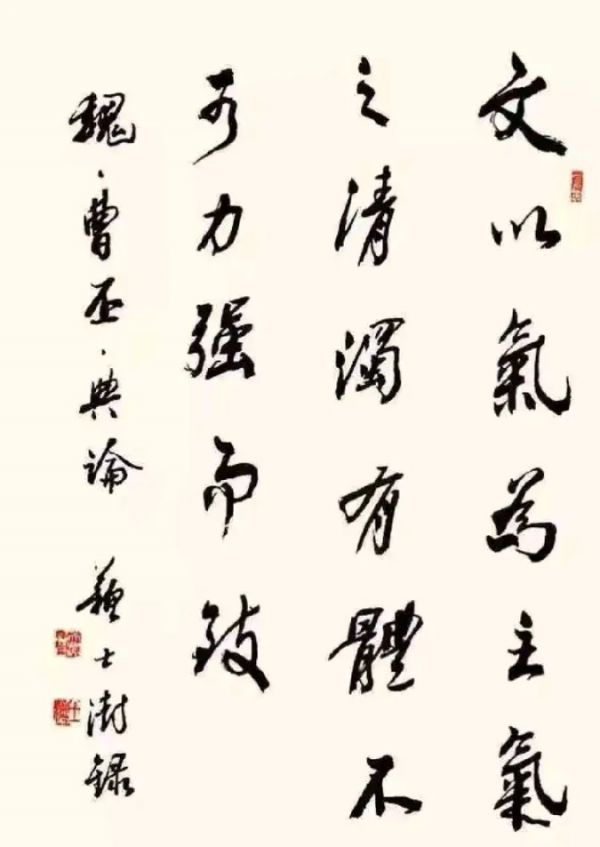 文以氣為主氣
之清濁有體不
可力強而致
魏·曹丕·典論 蘇士澍錄